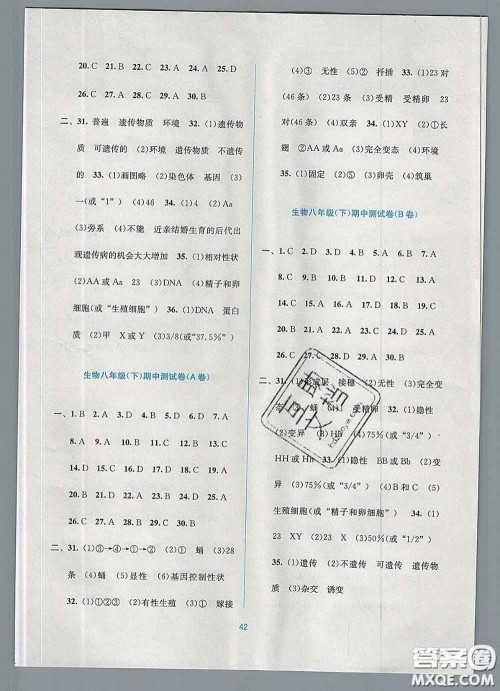 20. C 21. B 22. C 23. A 24. A 25. D
26. C 27. C 28. A 29. A 30. B
二、31. 普遍 遗传物质 环境 32. (1)遗传物
质 可遗传的 (2)环境 遗传物质 不遗传的
33. (1)画图略 (2)染色体 基因 (3)—
(或“1”) (4)46 34. (1)2 (2)Aa
(3)旁系 (4)不能 近亲结婚生育的后代出
现遗传病的机会大大增加 35. (1)相对性状
(2)AA或Aa 23 (3)DNA (4)精子和
卵细胞(或“生殖细胞”) 36. (1)DNA 蛋白
质 (2)甲 X或Y (3)3/8(或“37.5%”)
生物八年级(下)期中测试卷(A卷)
一、1. B 2. A 3. D 4. C 5. A 6. A 7. B
8. D 9. A 10. D 11. C 12. A 13. C
14. D 15. A 16. A 17. B 18. D 19. B
20. C 21. D 22. C 23. B 24. B 25. D
26. C 27. A 28. C 29. D 30. B
二、31. (1)③→④→①→② (2)① 蛹 (3)28
条 (4)DNA (5)显性 (6)基因控制性状
32. (1)①② (2)有性生殖 (3)① 嫁接
(4)③ 无性 (5)② 扦插 33. (1)23
对(46条) (2)23条 (3)受精 受精卵 23
对(46条) (4)双亲 34. (1)XY (2)①长
翅 ②AA或Aa (3)完全变态 (4)环境
35. (1)固定 (2)③ (3)卵壳 (4)筑巢
生物八年级(下)期中测试卷(B卷)
一、1. C 2. D 3. C 4. B 5. A 6. D 7. A
8. C 9. D 10. A 11. C 12. A 13. D
14. C 15. B 16. A
20. A 21. D 22.
26. C 27. D
二、31. (1)形成层 接穗 (2)无性 完全变态
(3)① 蛹 受精 ② 32. (1)隐性
(2)变异 (3)Hh (4)75%(或“3/4”)
HH或Hh 33. (1)隐性 BB或Bb (2)变
异 (3)75%(或“3/4”) (4)B和C (5)
生殖细胞(或“精子和卵细胞”) 34. (1)
(2) (3)50%(或“1/2”)
35. (1)遗传 (2)不遗传 可遗传 遗传物质
(3)杂交 诱变
42
答案圈
MXQE.COM